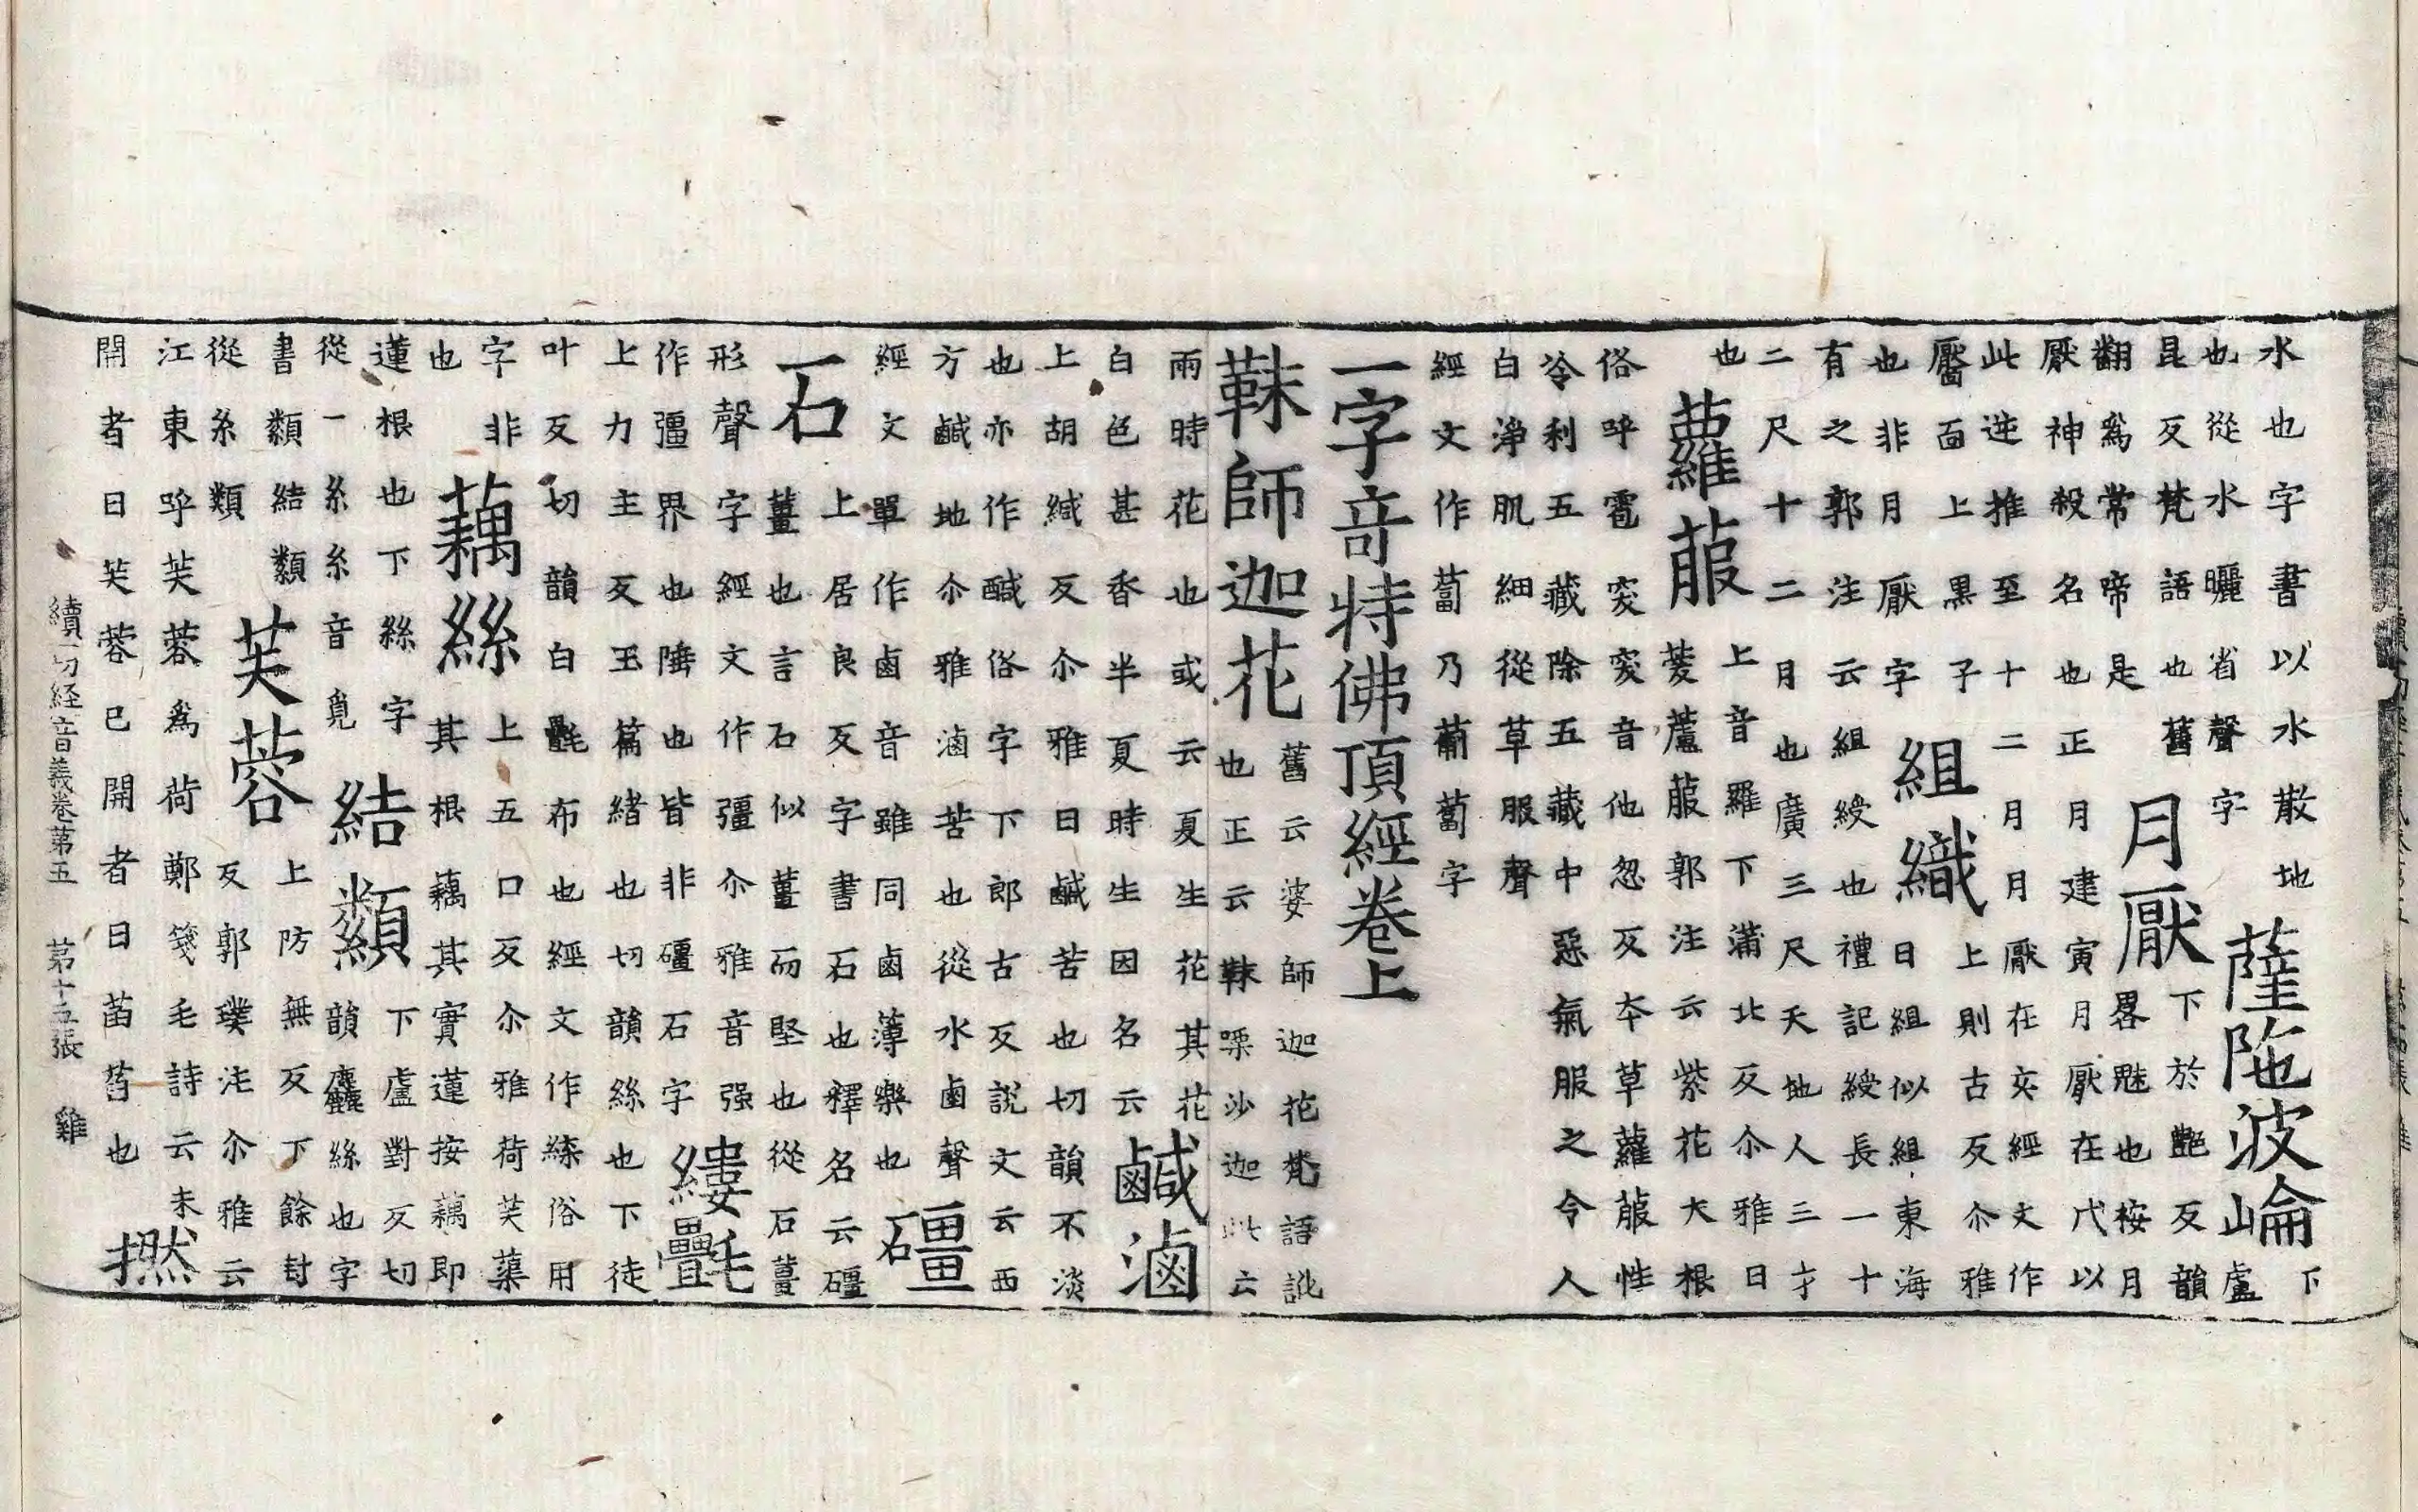 水也字書以水散地
也從水曬省聲字
薩陁波崘
下
盧
昆反梵語也舊
翻爲常啼是
月厭
下於艶反韻
畧魅也桉月
厭神殺名也正月建寅月厭在代以
此逆推至十二月月厭在亥經文作
魘面上黑子
也非月厭字
組織
上則古反尒雅
曰組似組東海
有之郭注云組綬也禮記綬長一十
二尺十二月也廣三尺天地人三才
也
蘿菔
上音羅下蒲北反尒雅曰
葖蘆菔郭注云紫花大根
俗呼雹葖葖音他忽反本草蘿菔性
冷利五藏除五藏中惡氣服之令人
白淨肌細從草服聲
經文作蔔乃葡蔔字
一字奇特佛頂經卷上
靺師迦花
舊云婆師迦花梵語訛
也正云靺㗚沙迦此云
雨時花也或云夏生花其花
白色甚香半夏時生因名云
鹹滷
上胡緘反尒雅曰鹹苦也切韻不淡
也亦作醎俗字下郎古反說文云西
方鹹地尒雅滷苦也從水鹵聲
經文單作鹵音雖同鹵薄樂也
礓
石
上居良反字書石也釋名云礓
薑也言石似薑而堅也從石薑
形聲字經文作彊尒雅音强
作疆界也陲也皆非礓石字
縷氎
上力主反玉篇緒也切韻絲也下徒
叶反切韻白氎布也經文作緤俗用
字非
也
藕絲
上五口反尒雅荷芙蕖
其根藕其實蓮按藕即
蓮根也下絲字
從一糸糸音覓
結纇
下盧對反切
韻麤絲也字
書纇結纇
從糸類
芙蓉
上防無反下餘封
反郭璞注尒雅云
江東呼芙蓉爲荷鄭箋毛詩云未
開者曰芙蓉已開者曰菡萏也
撚
續一切経音義卷第五 第十五張 雞